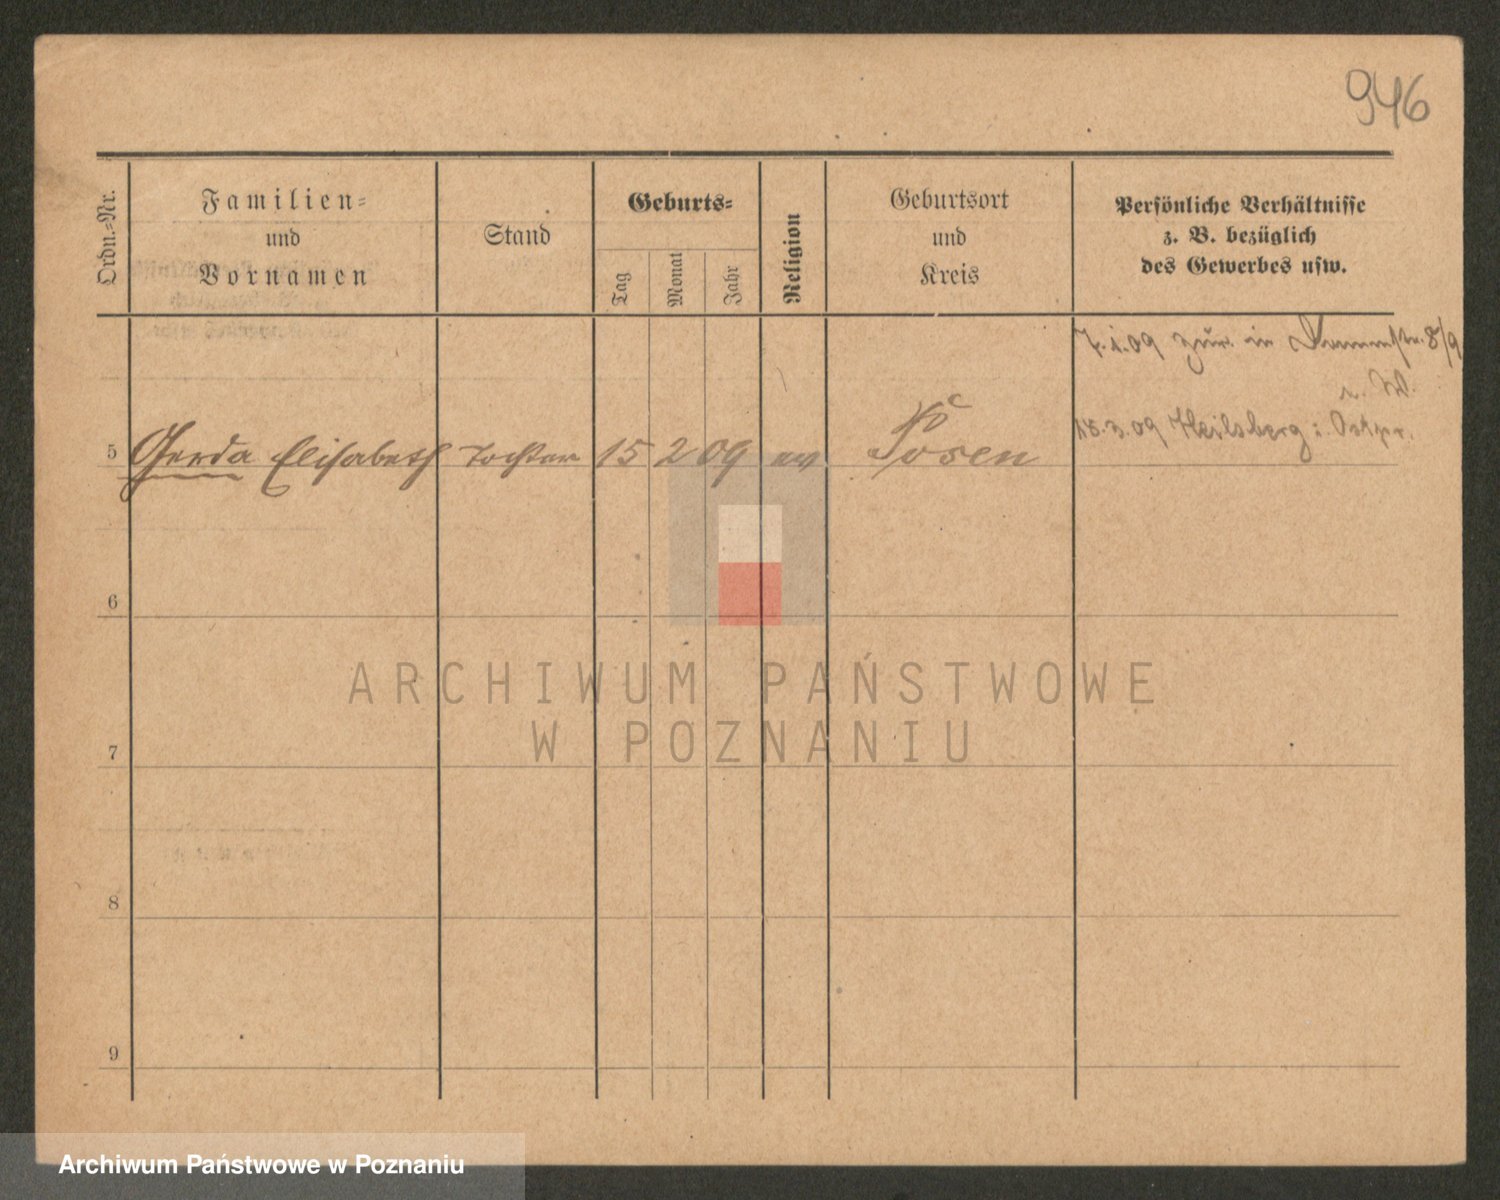 946
Ordn.-Nr.
Familien-
und
Vornamen
Stand
Geburts-
Tag
Monat
Jahr
Religion
Geburtsort
und
Kreis
Persönliche Verhältnisse
z. B. bezüglich
des Gewerbes usw.
7.1.09 zur. in
8/9
15.3.09 Heilsberg i. Ostpr.
5 Gerda Elisabeth Tochter 15 2 09 ev Posen
6
7
8
9
ARCHIWUM PAŃSTWOWE
W POZNANIU
Archiwum Państwowe w Poznaniu